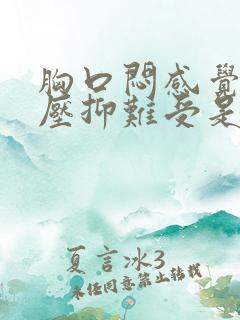 胸口悶感覺
壓抑難受是
夏言冰3
未任同意禁止转载